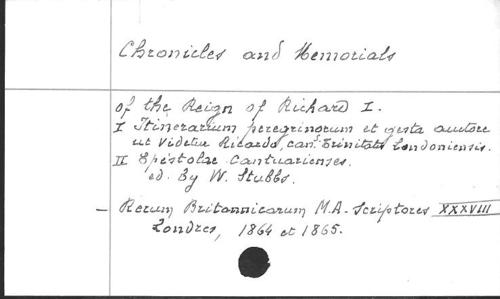 Chronicles and Memorials
of the Reign of Richard I.
I Itinerarium peregrinorum et gesta auctore
ut videtur Ricardo, can. S. Trinitatis Londoniensis.
II Epistolae Cantuarienses.
ed. by W. Stubbs.
- Rerum Britannicarum M.A. Scriptores XXXVIII
Londres, 1864 et 1865.